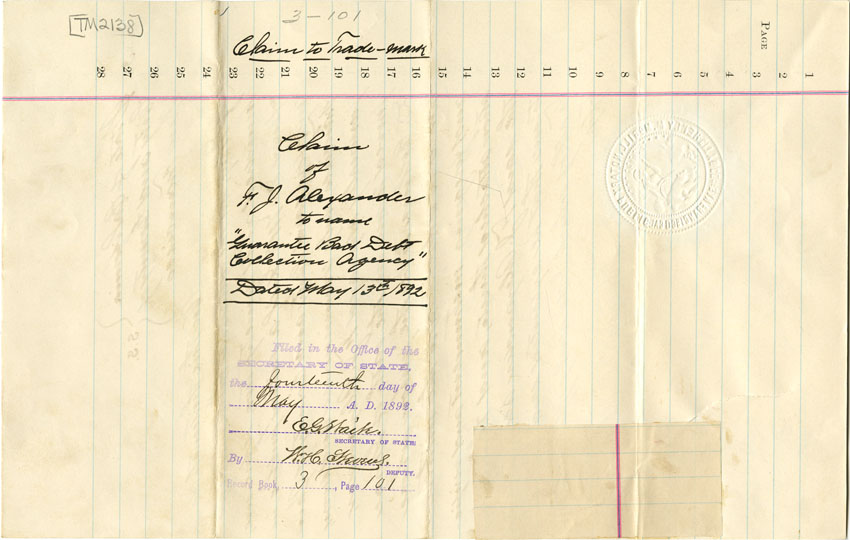 [TM2138]
3-101
Claim to Trade-mark
PAGE
1
2
3
4
5
6
7
8
9
10
11
12
13
14
15
16
17
18
19
20
21
22
23
24
25
26
27
28
Claim
of
F. J. Alexander
to name
"Guarantee Bad Debt
Collection Agency"
Dated May 13th 1892
Filed in the Office of the
SECRETARY OF STATE,
the fourteenth day of
May A. D. 1892.
E. G. Waite.
SECRETARY OF STATE:
By W. H.
DEPUTY.
Record Book, 3, Page 101